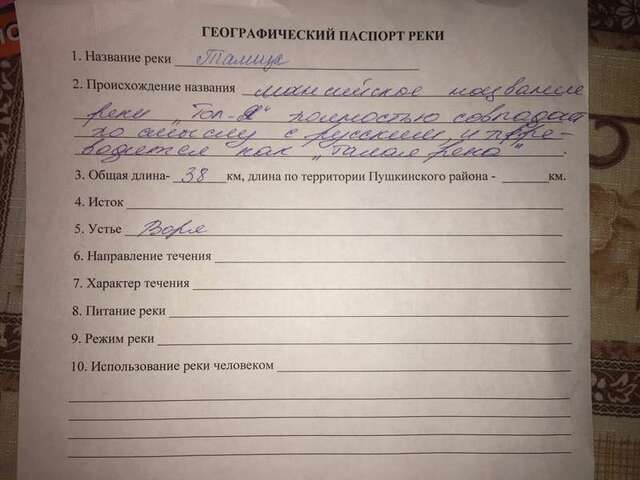 ГЕОГРАФИЧЕСКИЙ ПАСПОРТ РЕКИ
1. Название реки Талица
2. Происхождение названия мансийское название
реки "Тол-Я" полностью совпадает
по смыслу с русским и пере-
водится как "Талая река".
3. Общая длина- 38 км, длина по территории Пушкинского района - км.
4. Исток
5. Устье Воря
6. Направление течения
7. Характер течения
8. Питание реки
9. Режим реки
10. Использование реки человеком